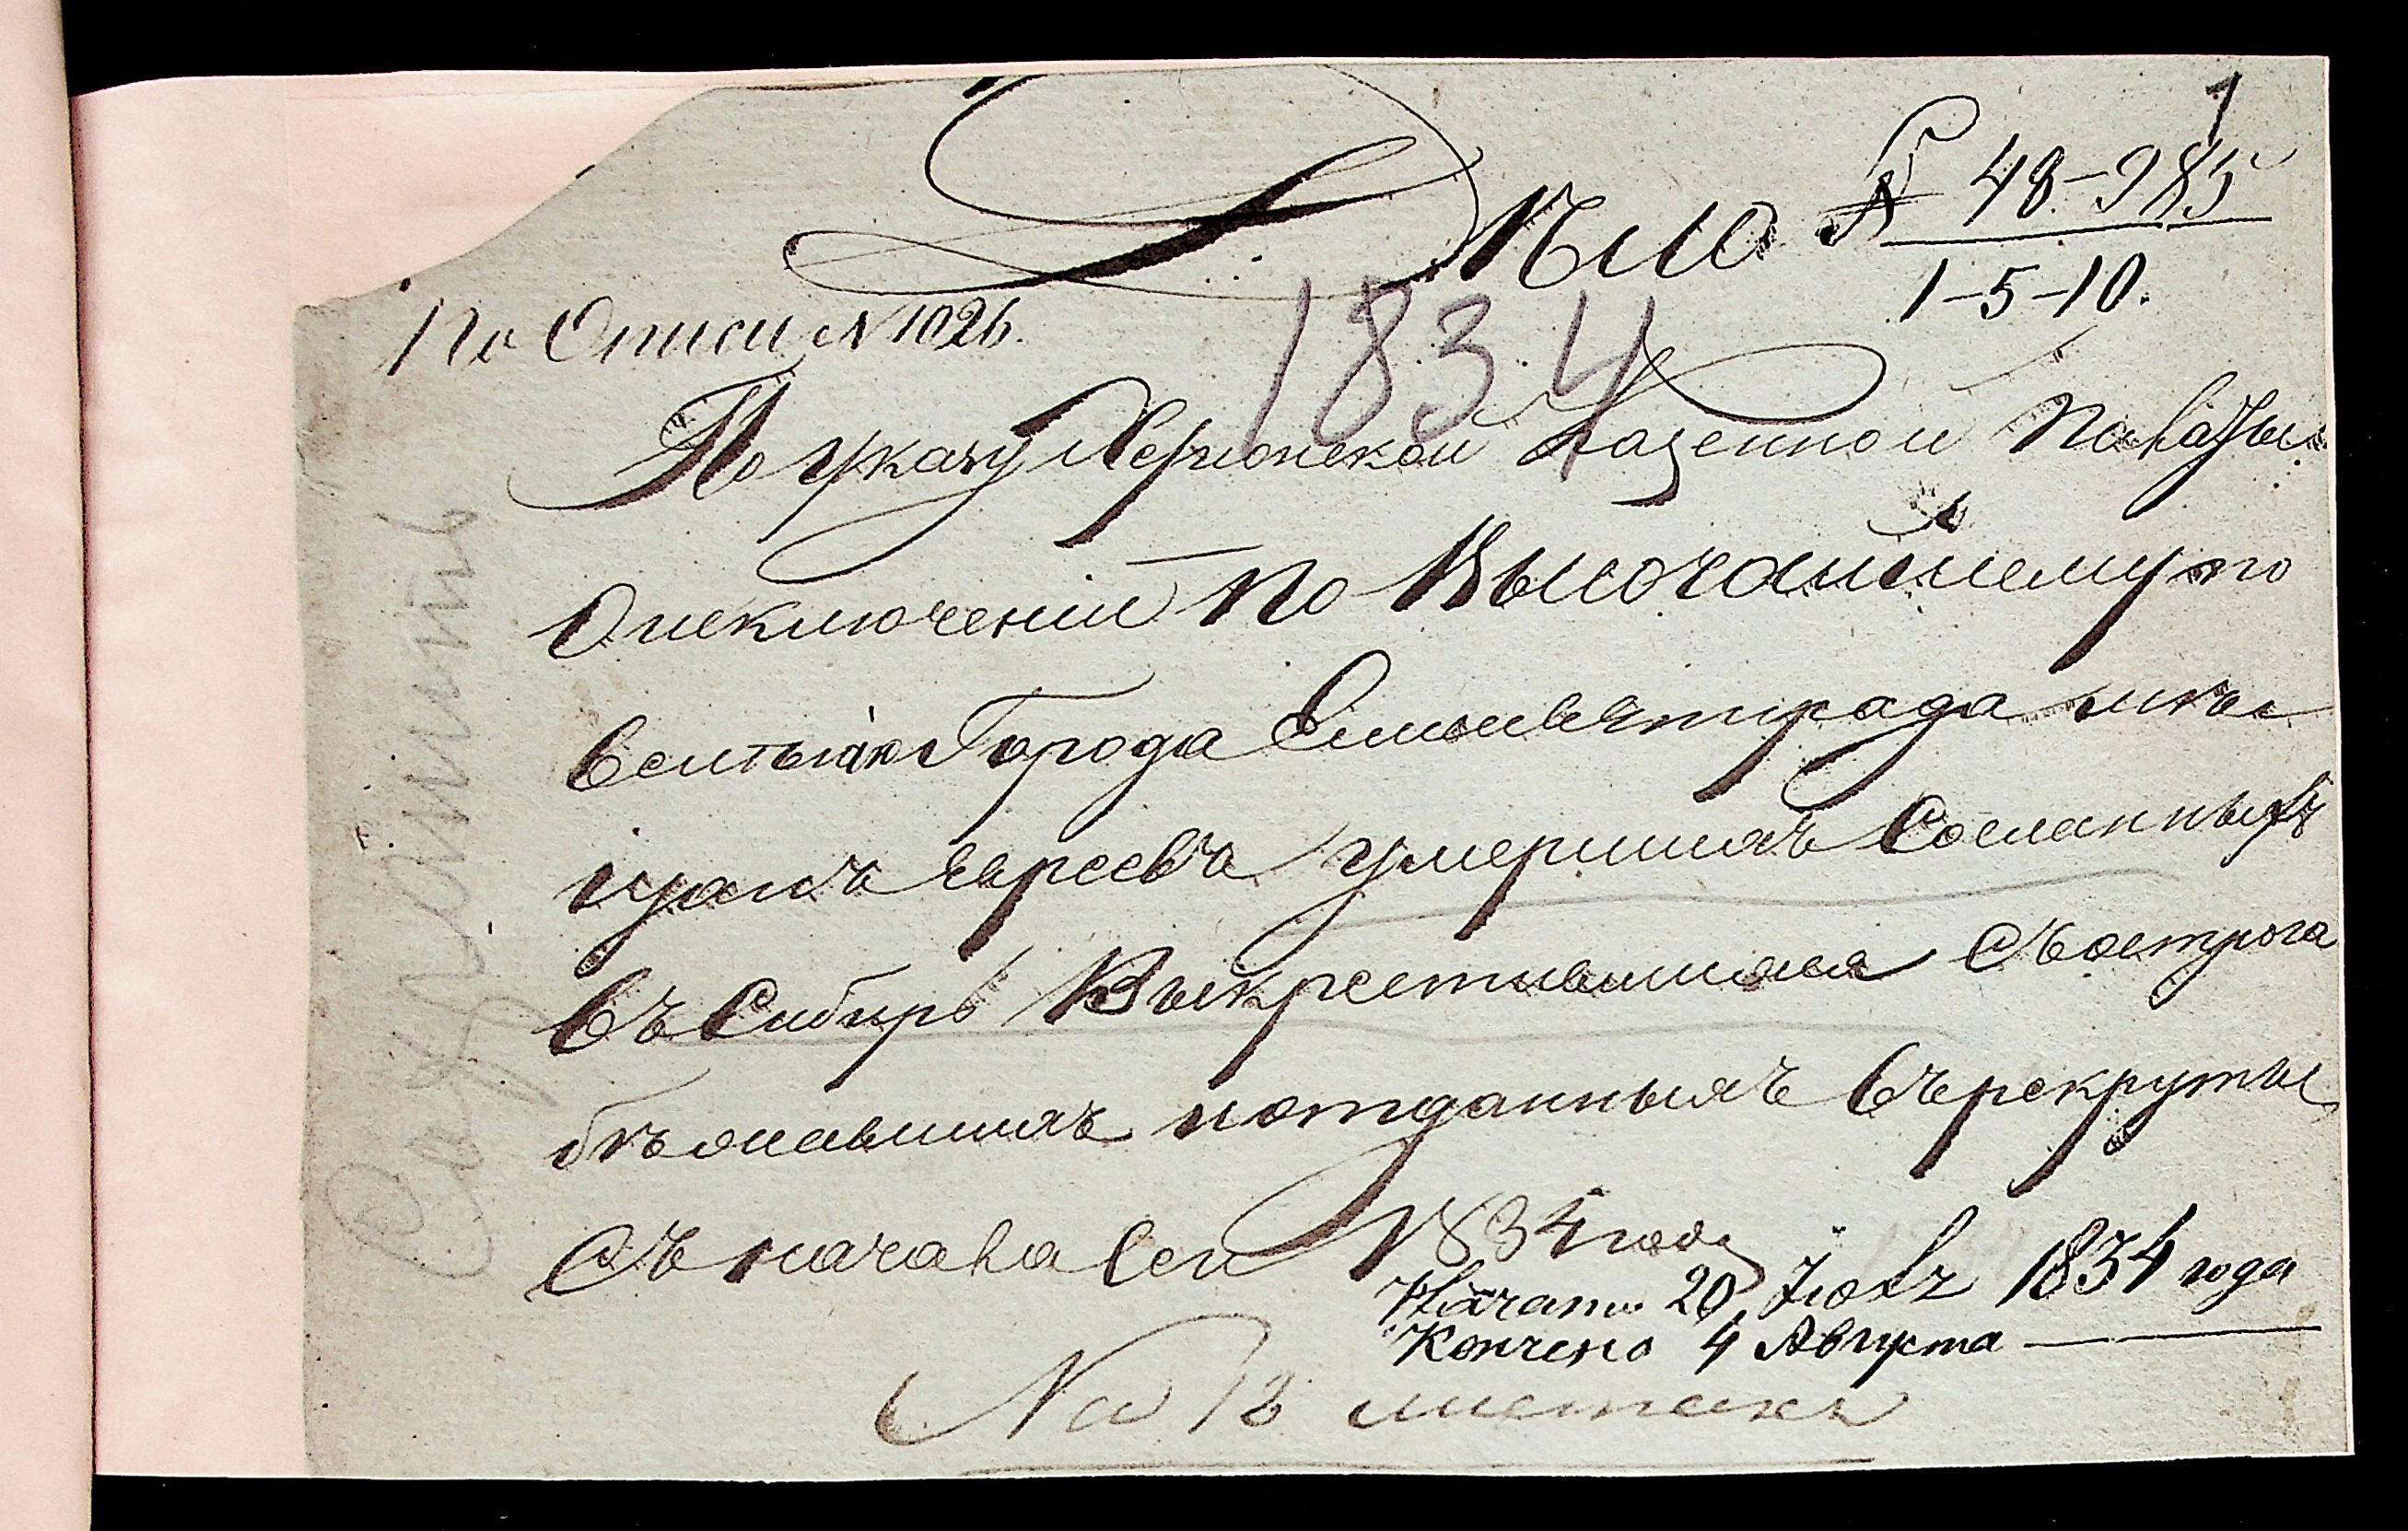 1
Дѣло
№ 48-985
1-5-10.
По Описи № 1026.
1834
По указу Херсонской Казенной Палаты
О исключении по Высочайшему по
велѣнію Города Елисаветграда мѣ
щанъ евреевъ умершихъ Сосланныхъ
Въ Сибирь Выкрестившихся Съ острога
бѣжавшихъ и отданныхъ Въ рекруты
Съ начала Сей 1834 года
Начато 20 Іюля 1834 года
Кончено 4 Августа
На 12 листахъ
Сохранить